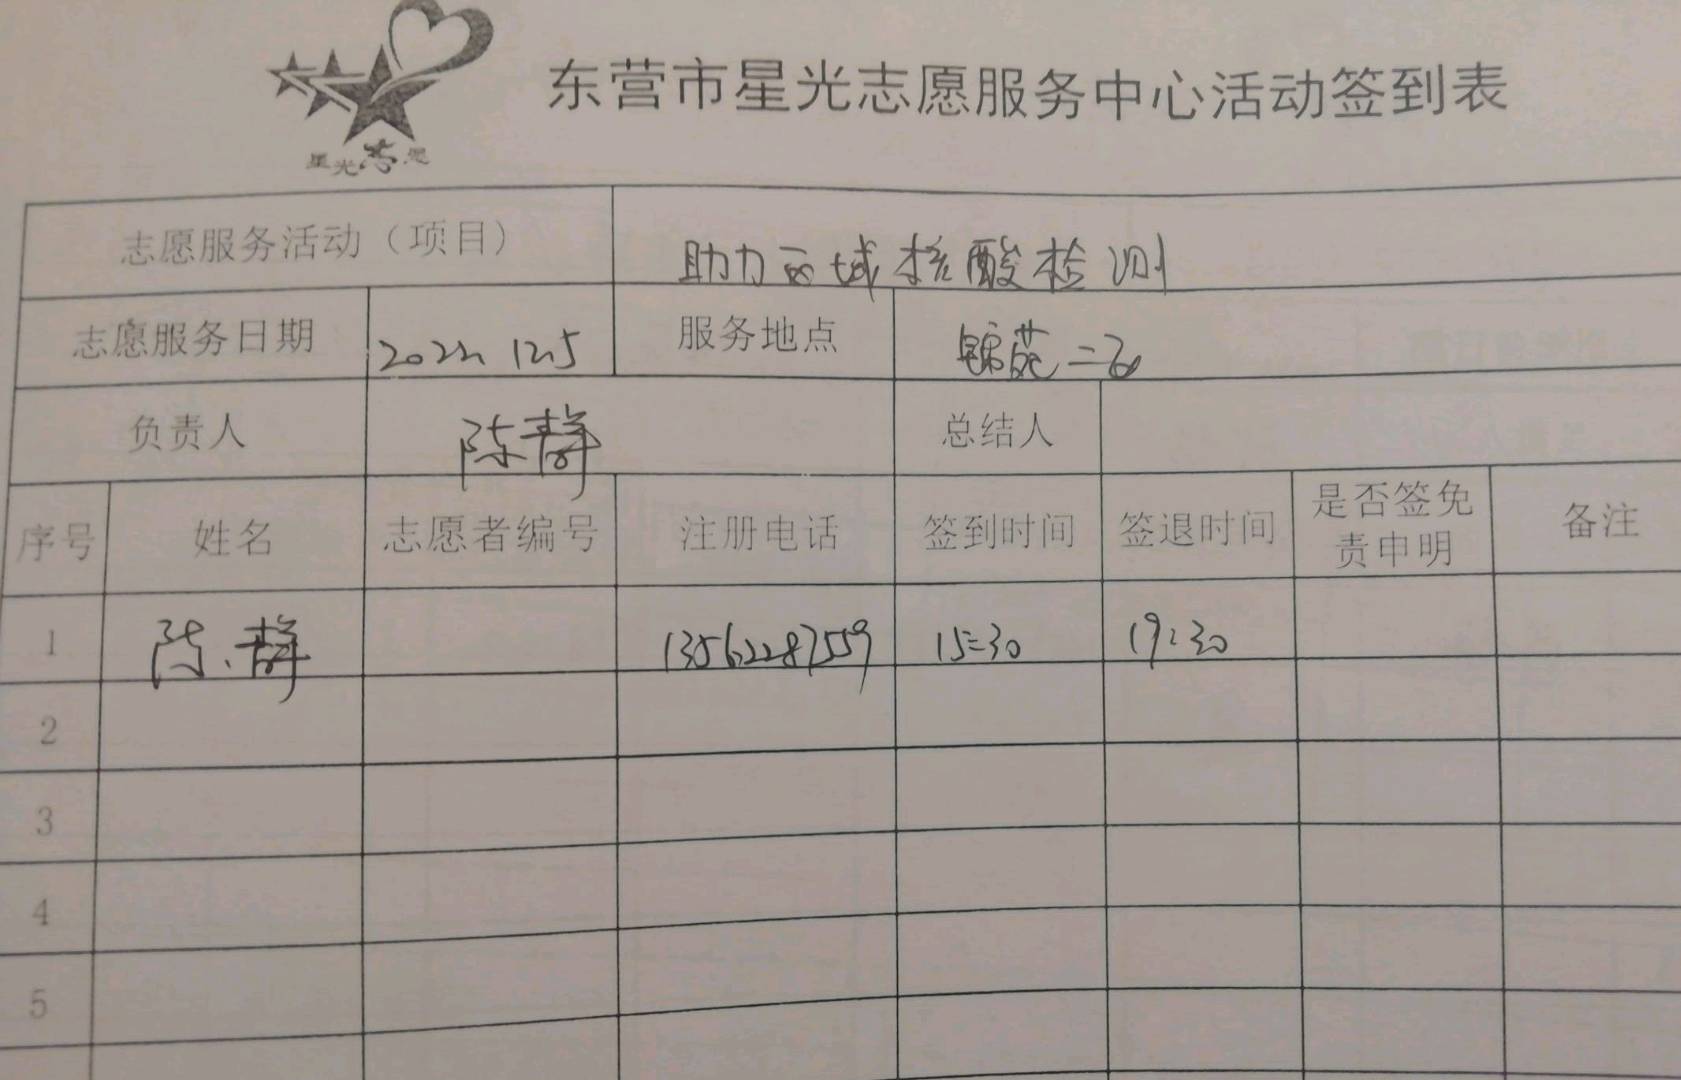 星光志愿
东营市星光志愿服务中心活动签到表
志愿服务活动（项目） 助力区域核酸检测
志愿服务日期 2022.12.5 服务地点 锦苑二
负责人 陈静 总结人
序号 姓名 志愿者编号 注册电话 签到时间 签退时间 是否签免责申明 备注
1 陈静 13562287559 15:30 19:30
2
3
4
5